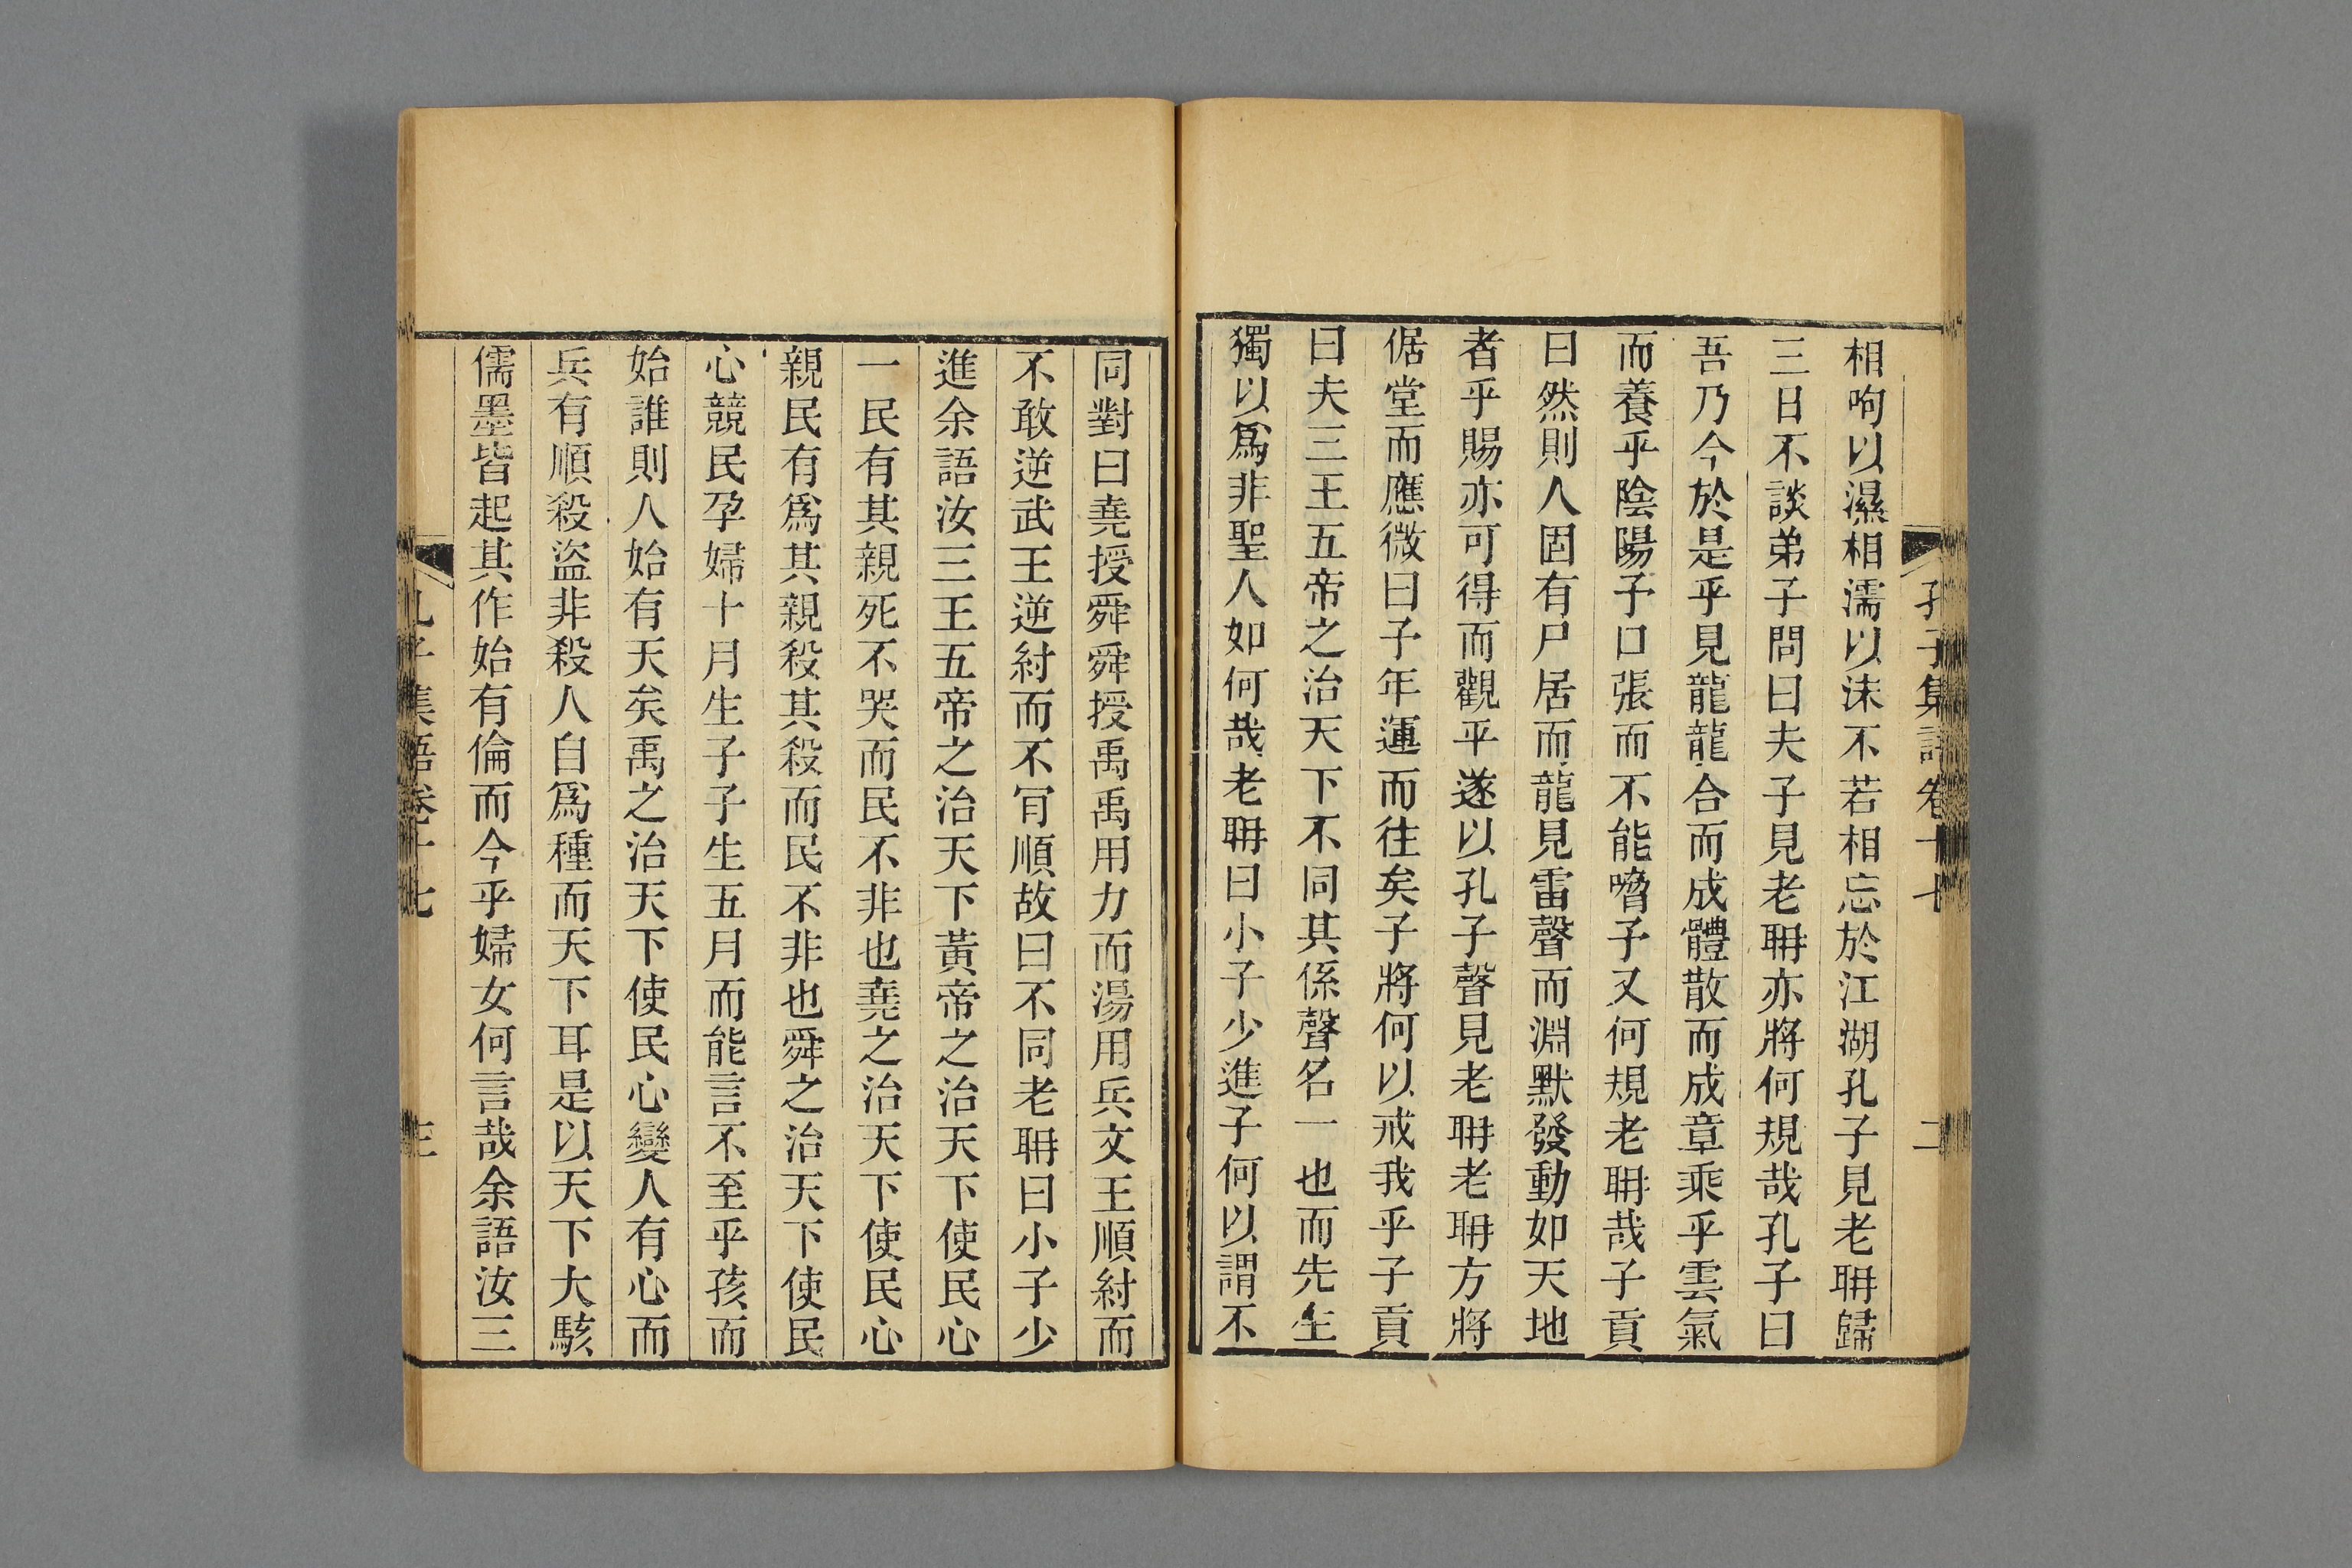 孔子集語卷十七
二
相呴以濕相濡以沫不若相忘於江湖孔子見老聃歸
三日不談弟子問曰夫子見老聃亦將何規哉孔子曰
吾乃今於是乎見龍龍合而成體散而成章乘乎雲氣
而養乎陰陽予口張而不能嗋予又何規老聃哉子貢
曰然則人固有尸居而龍見雷聲而淵默發動如天地
者乎賜亦可得而觀乎遂以孔子聲見老聃老聃方將
倨堂而應微曰子年運而往矣子將何以戒我乎子貢
曰夫三王五帝之治天下不同其係聲名一也而先生
獨以爲非聖人如何哉老聃曰小子少進子何以謂不
同對曰堯授舜舜授禹禹用力而湯用兵文王順紂而
不敢逆武王逆紂而不肎順故曰不同老聃曰小子少
進余語汝三王五帝之治天下黃帝之治天下使民心
一民有其親死不哭而民不非也堯之治天下使民心
親民有爲其親殺其殺而民不非也舜之治天下使民
心競民孕婦十月生子子生五月而能言不至乎孩而
始誰則人始有夭矣禹之治天下使民心變人有心而
兵有順殺盜非殺人自爲種而天下耳是以天下大駭
儒墨皆起其作始有倫而今乎婦女何言哉余語汝三
孔子集語卷十七
三